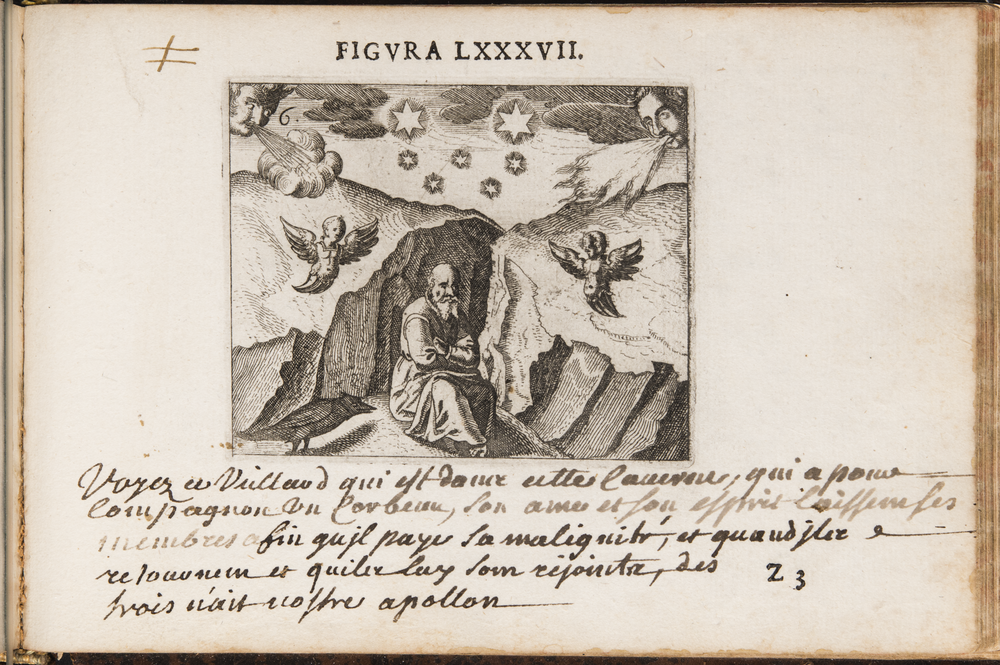 FIGVRA LXXXVII.
6.
Voyez ce Viellard qui est dans cette Caverne, qui a pour
Compagnon Un Corbeau, son ame et son esprit laissent ses
membres afin qu'jl paye sa malignité, et quand jlz
retournent et qu'ilz luy sont rejointz, des
trois n'ait nostre apollon
23